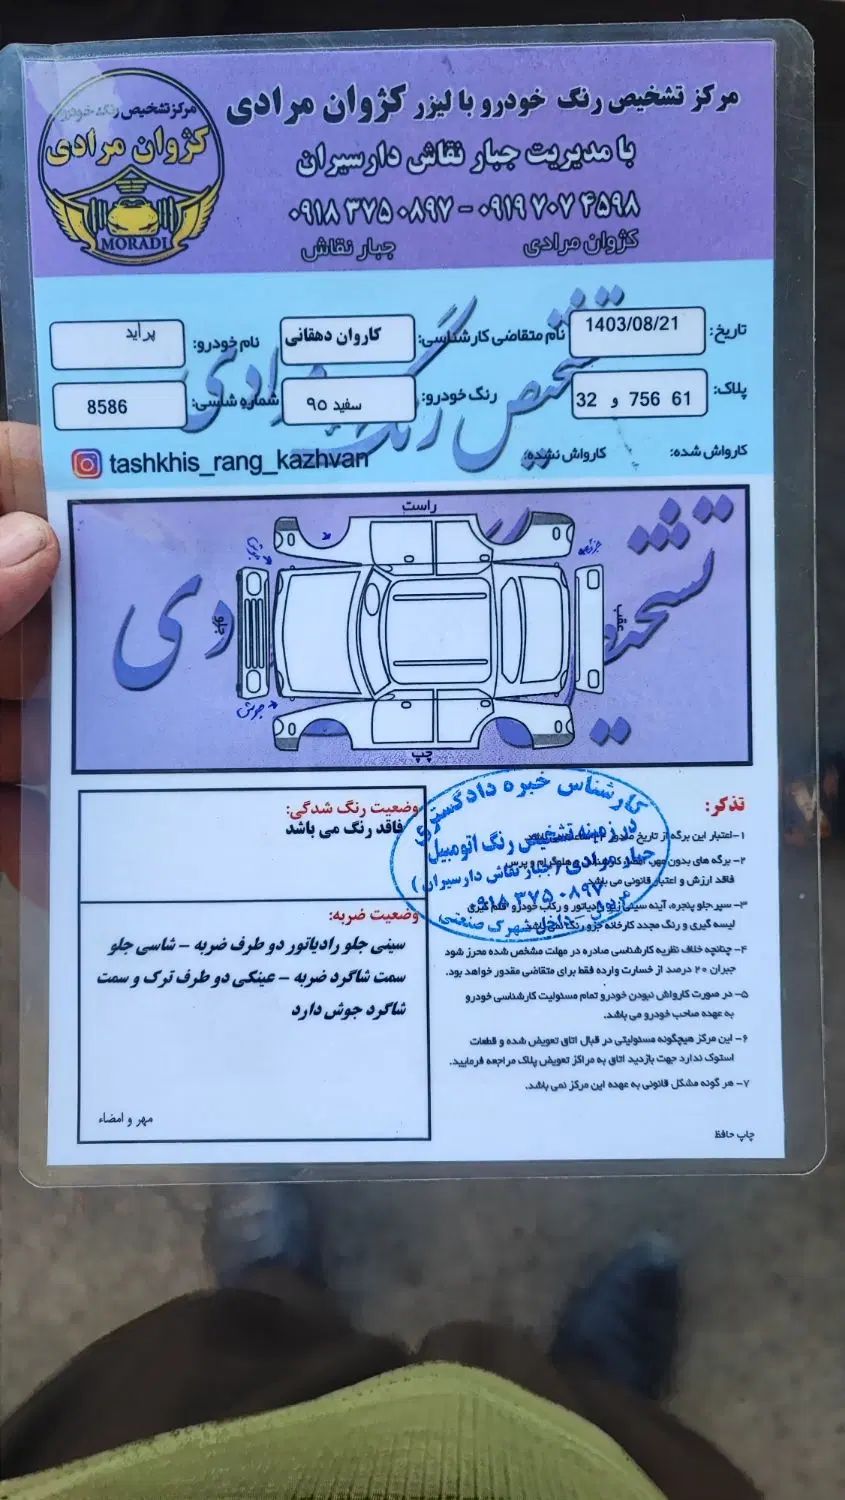 مرکز تشخیص رنگ خودرو با لیزر کژوان مرادی
با مدیریت جبار نقاش دارسیران
۰۹۱۸ ۳۷۵ ۰۸۹۷ - ۰۹۱۹ ۷۰۷ ۴۵۹۸
کژوان مرادی
جبار نقاش
مرکز تشخیص رنگ خودرو
کژوان مرادی
MORADI
تاریخ: 1403/08/21
نام متقاضی کارشناسی: کاروان دهقانی
نام خودرو: پراید
پلاک: 32 و 756 61
رنگ خودرو: سفید ۹۵
شماره شاسی: 8586
کارواش شده:
کارواش نشده:
tashkhis_rang_kazhvan
راست
جلو
عقب
چپ
جوش
وضعیت رنگ شدگی:
فاقد رنگ می باشد
وضعیت ضربه:
سینی جلو رادیاتور دو طرف ضربه - شاسی جلو
سمت شاگرد ضربه - عینکی دو طرف ترک و سمت
شاگرد جوش دارد
مهر و امضاء
تذکر:
۱-اعتبار این برگه از تاریخ
۲- برگه های بدون مهر، و هلوگرام و پرس
فاقد ارزش و اعتبار قانونی می باشد.
۳- سپر جلو پنجره، آینه سینی زیر رادیاتور و رکاب خودرو قلم گیری
لیسه گیری و رنگ مجدد کارخانه جزو رنگ نمی باشد.
۴- چنانچه خلاف نظریه کارشناسی صادره در مهلت مشخص شده محرز شود
جبران ۲۰ درصد از خسارت وارده فقط برای متقاضی مقدور خواهد بود.
۵- در صورت کارواش نبودن خودرو تمام مسئولیت کارشناسی خودرو
به عهده صاحب خودرو می باشد.
۶- این مرکز هیچگونه مسئولیتی در قبال اتاق تعویض شده و قطعات
استوک ندارد جهت بازدید اتاق به مراکز تعویض پلاک مراجعه فرمایید.
۷- هر گونه مشکل قانونی به عهده این مرکز نمی باشد.
چاپ حافظ
کارشناس خبره دادگستری
در زمینه تشخیص رنگ اتومبیل
جبار مرادی (جبار نقاش دارسیران)
۰۹۱۸ ۳۷۵ ۰۸۹۷
داخل شهرک صنعتی